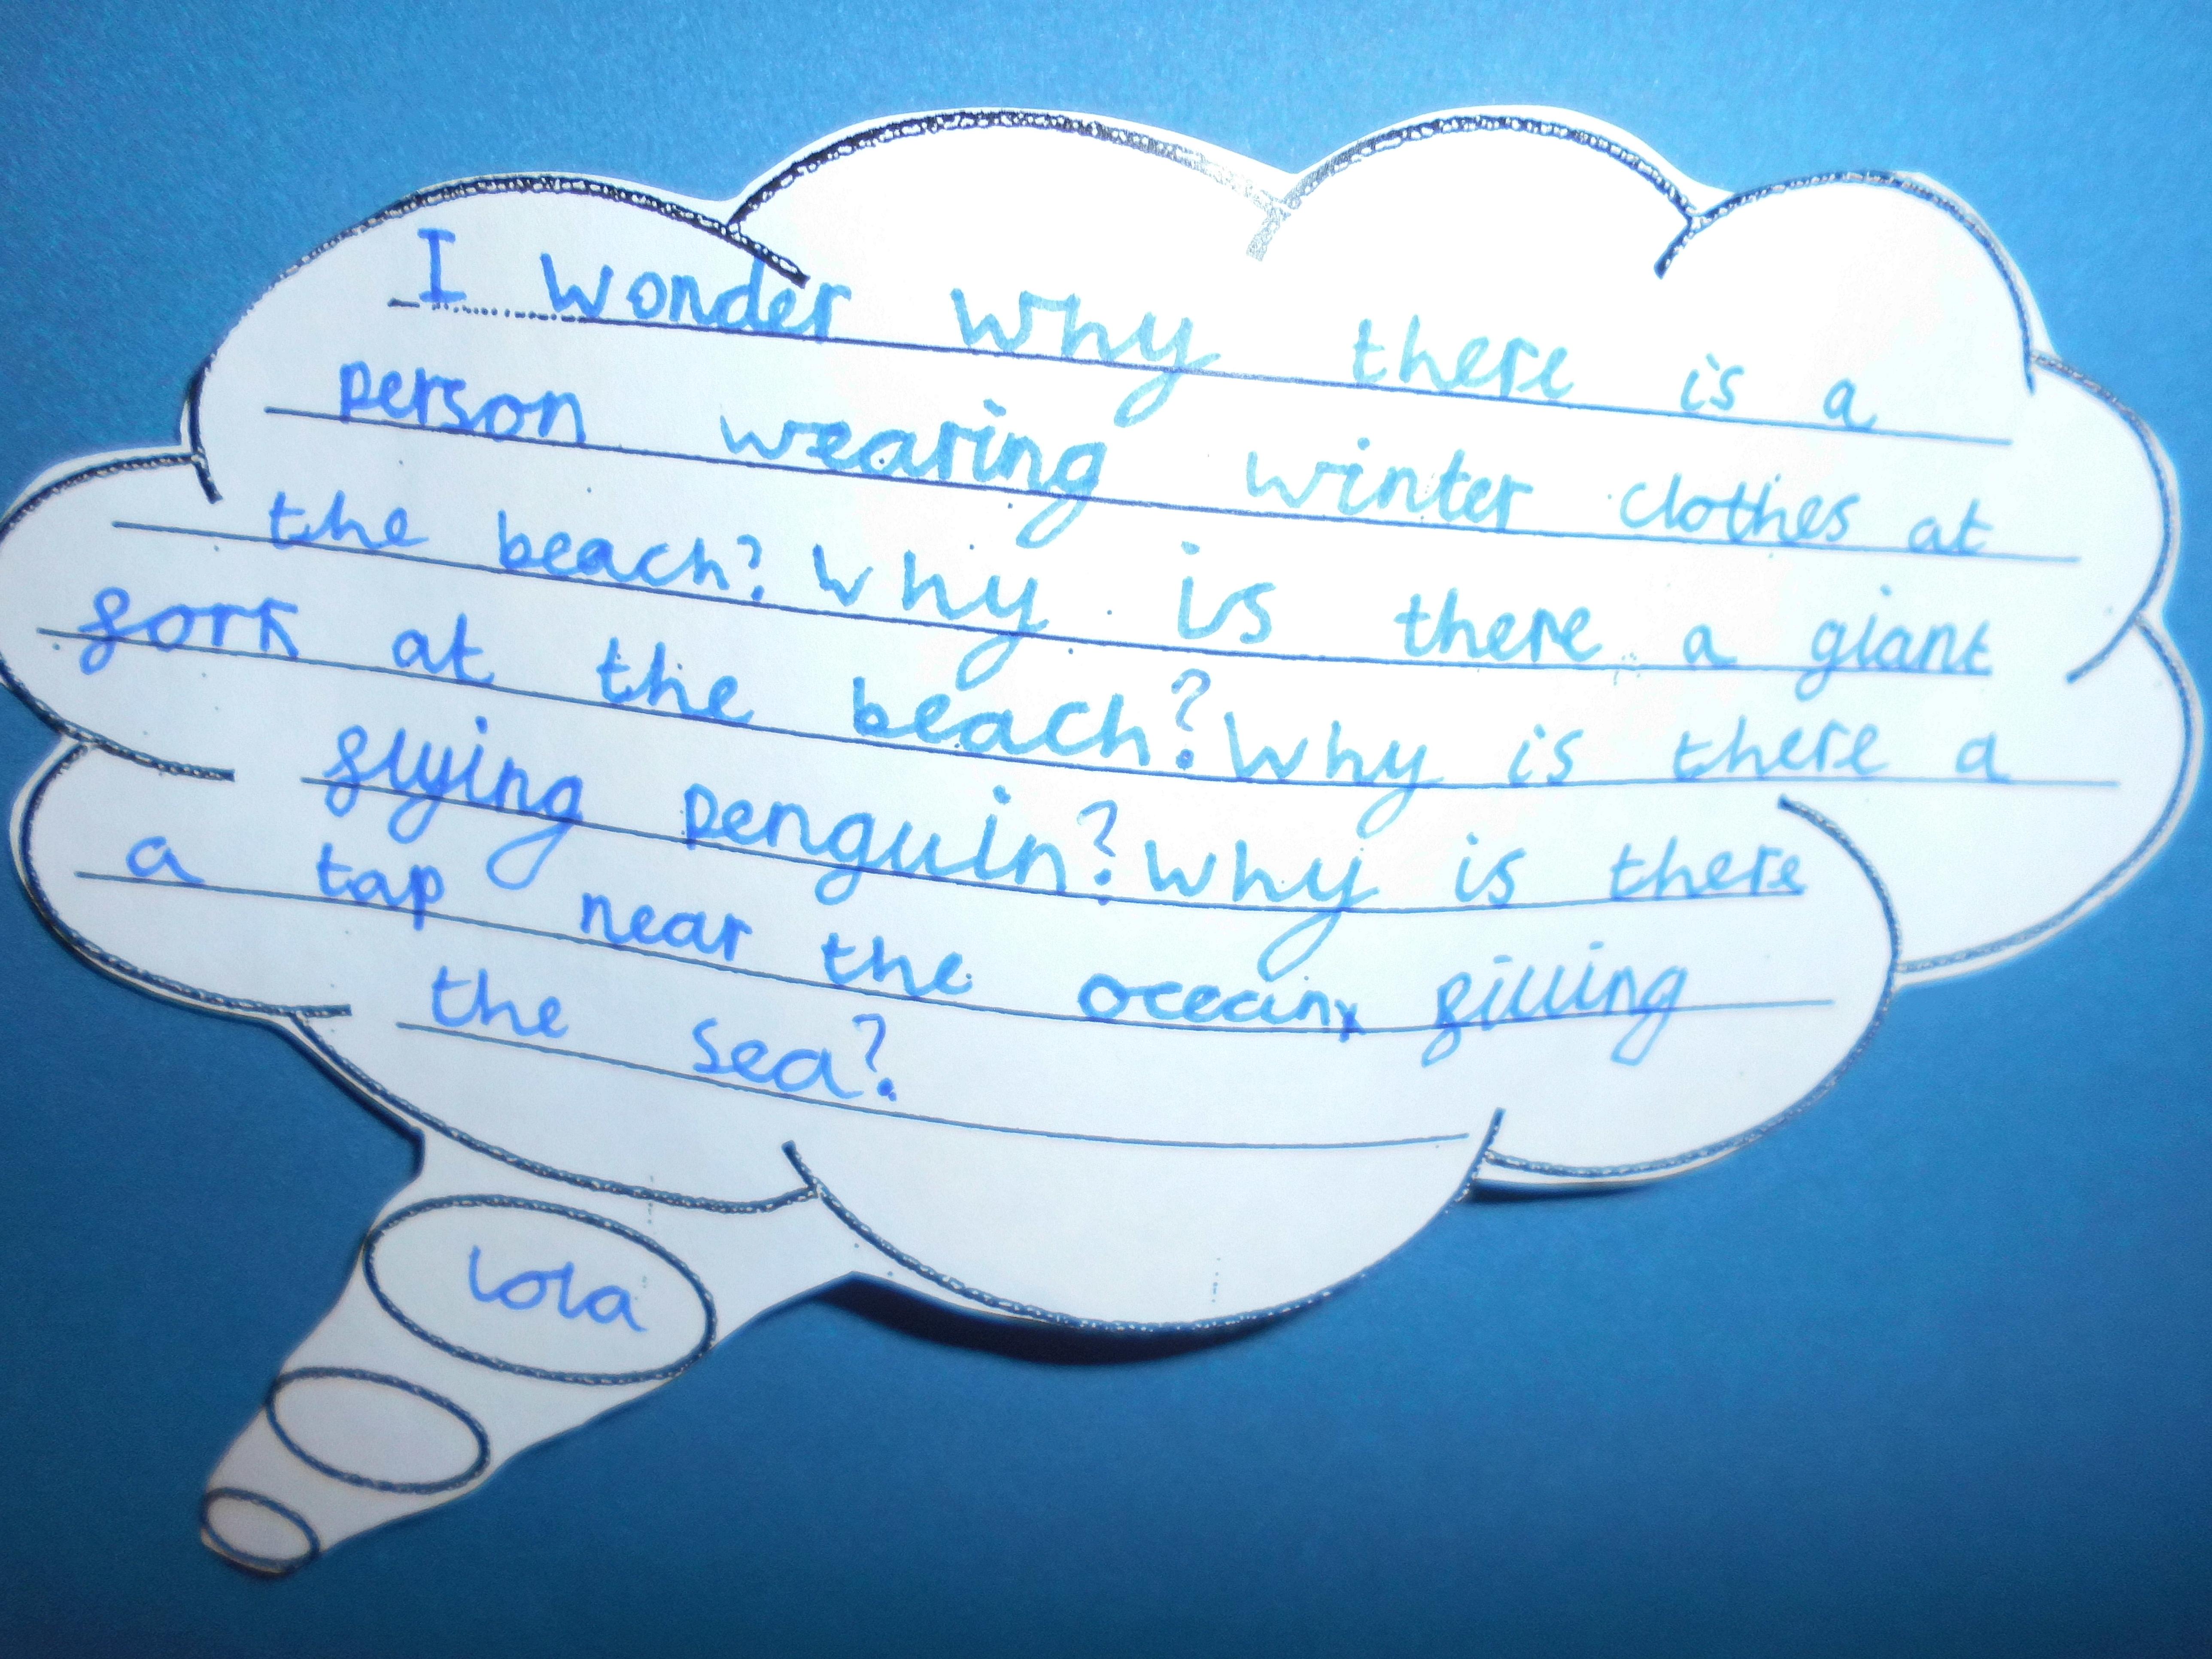 I wonder why there is a
person wearing winter clothes at
the beach? Why is there a giant
fork at the beach? Why is there a
flying penguin? Why is there
a tap near the ocean filling
the sea?
lola